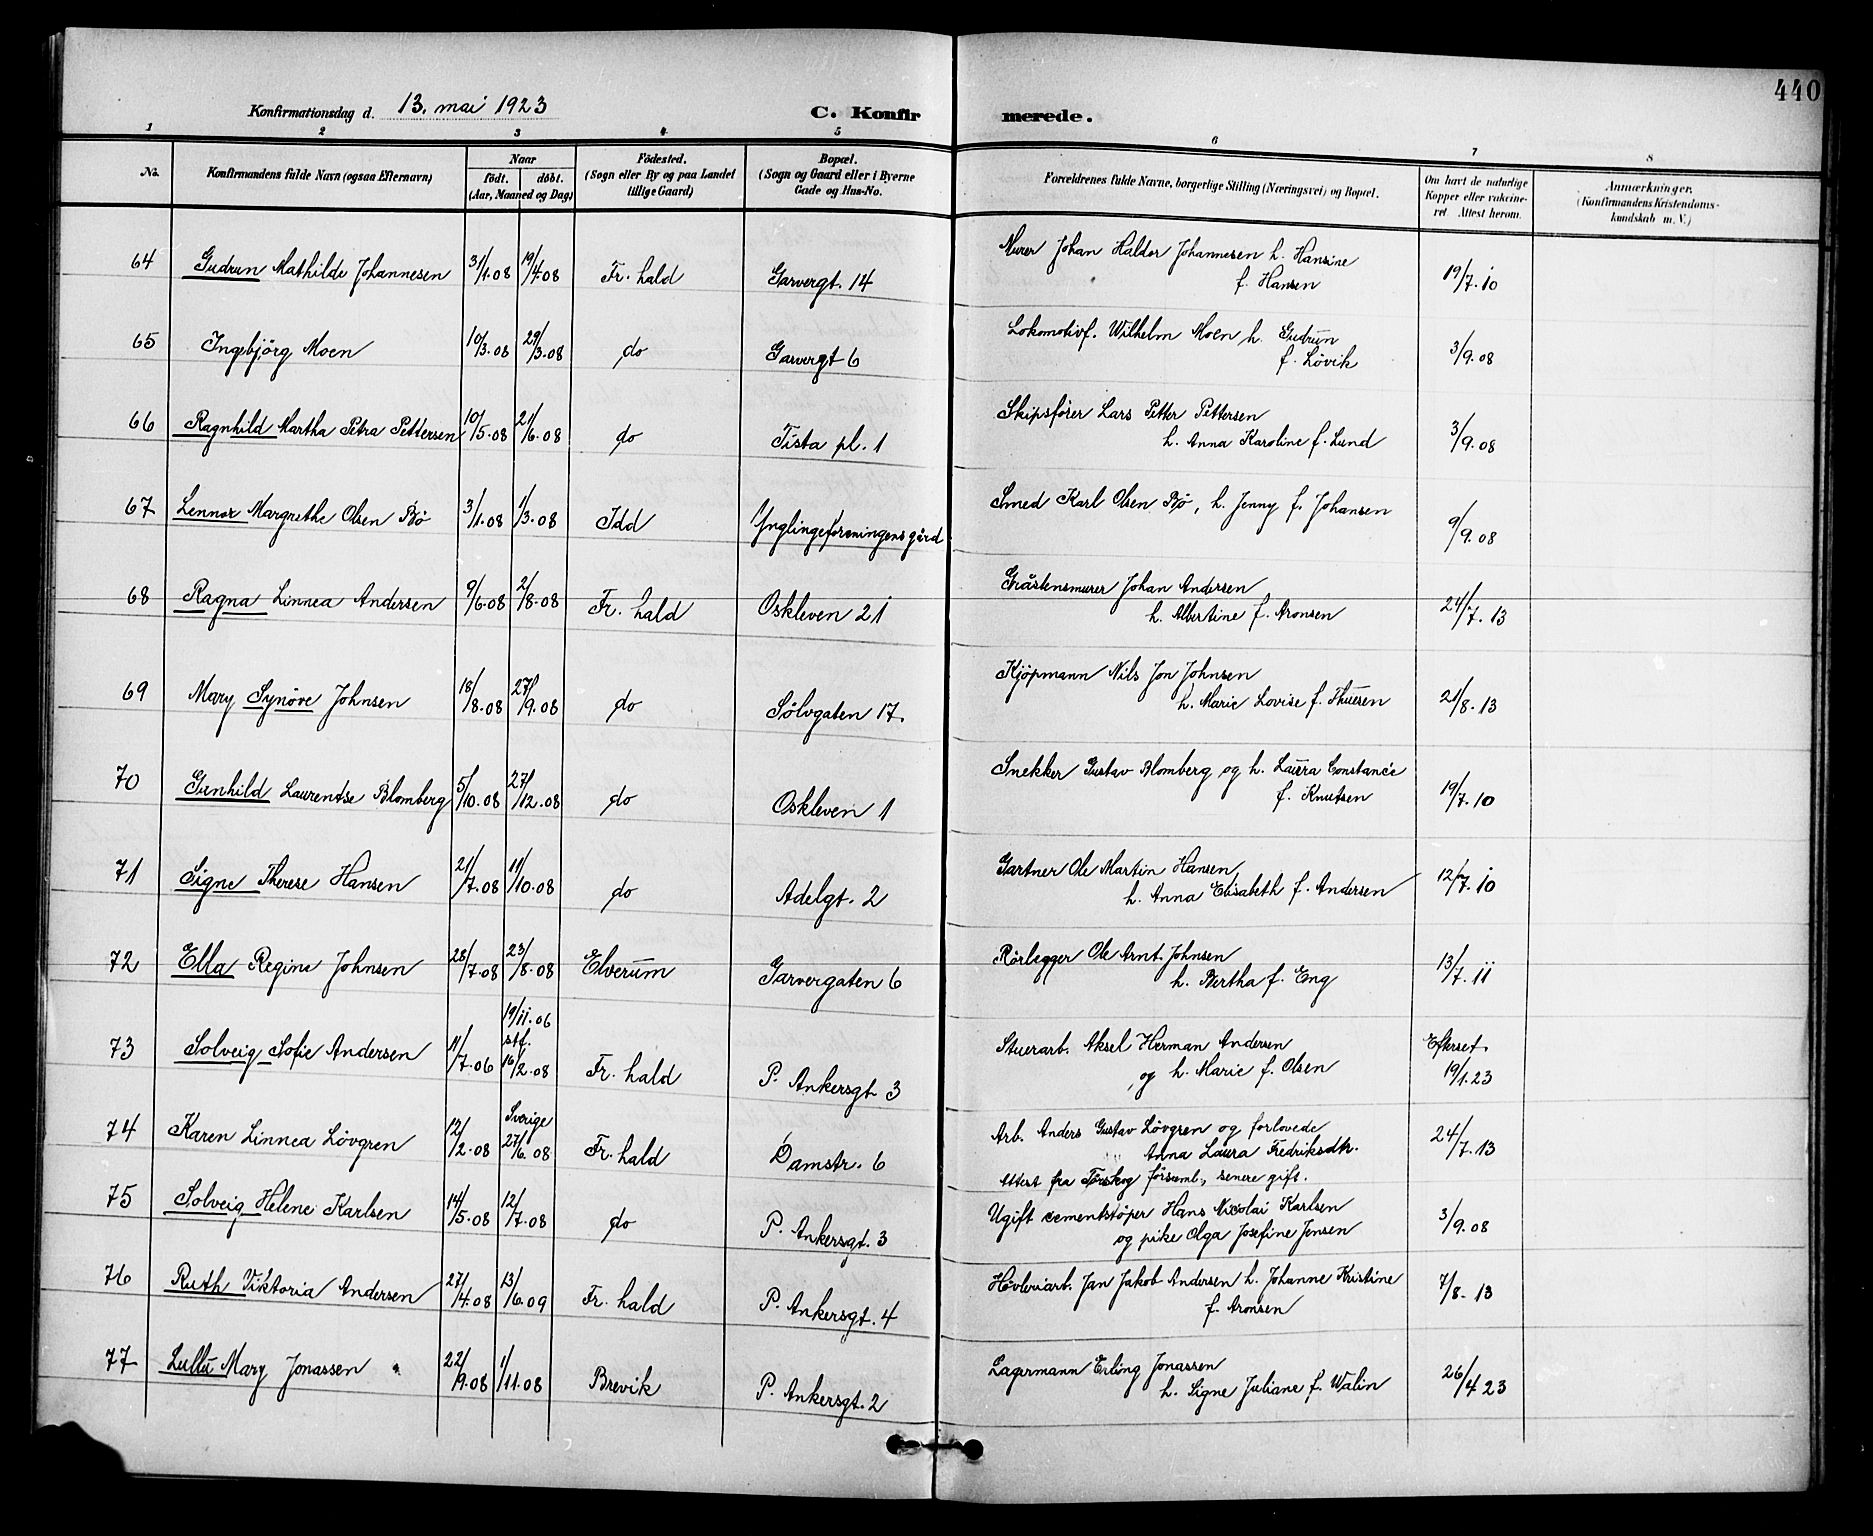 440
Konfirmationsdag d. 13. mai 1923
C. Konfirmerede.
1 2 3 4 5 6 7 8
No.
Konfirmandens fulde Navn (ogsaa Efternavn)
Naar
födt. döbt.
(Aar, Maaned og Dag)
Födested.
(Sogn eller By og paa Landet
tillige Gaard)
Bopæl.
(Sogn og Gaard eller i Byerne
Gade og Hus-No.
Forældrenes fulde Navne, borgerlige Stilling (Næringsvei) og Bopæl.
Om havt de naturlige
Kopper eller vakcine-
ret Attest herom.
Anmærkninger.
(Konfirmandens Kristendoms-
kundskab m. V.)
64 Gudrun Mathilde Johannesen 31/1.08 19/4.08 Fr. hald Garvergt. 14 Murer Johan Halder Johannesen h. Hansine
f. Hansen 19/7.10
65 Ingebjörg Moen 10/3.08 29/3.08 do Garvergt 6 Lokomotivf. Wilhelm Moen h. Gudrun
f. Lövik 3/9.08
66 Ragnhild Martha Petra Pettersen 10/5.08 21/6.08 do Tista pl. 1 Skipsförer Lars Petter Pettersen
h. Anna Karoline f. Lund 3/9.08
67 Lennor Margrethe Olsen Bö 3/1.08 1/3.08 Idd Ynglingeforeningens gård Smed Karl Olsen Bö, h. Jenny f. Johansen 9/9.08
68 Ragna Linnea Andersen 9/6.08 2/8.08 Fr. hald Oskleven 21 Gråstensmurer Johan Andersen
h. Albertine f. Aronsen 24/7.13
69 Mary Synöve Johnsen 18/8.08 27/9.08 do Sölvgaten 17. Kjöpmann Nils Jon Johnsen
h. Marie Lovise f. Thuesen 21/8.13
70 Gunhild Laurentse Blomberg 5/10.08 27/12.08 do Oskleven 1 Snekker Gustav Blomberg og h. Laura Constance
f. Knutsen 19/7.10
71 Signe Therese Hansen 21/7.08 11/10.08 do Adelgt. 2 Gartner Ole Martin Hansen,
h. Anna Elisabeth f. Andersen 12/7.10
72 Ella Regine Johnsen 28/7.08 23/8.08 Elverum Garvergaten 6 Rörlegger Ole Arnt Johnsen
h. Bertha f. Eng 13/7.11
73 Solveig Sofie Andersen 11/7.06 19/11.06
stf.
16/2.08 Fr. hald P. Ankersgt 3 Stuerarb. Aksel Herman Andersen
og h. Marie f. Olsen Efterset.
19/1.23
74 Karen Linnea Lövgren 12/2.08 Sverige
27/6.08 Fr. hald Damstr. 6 Arb. Anders Gustav Lövgren og forlovede
Anna Laura Fredriksdtr.
Attest fra Torskog församl., senere gift. 24/7.13
75 Solveig Helene Karlsen 14/5.08 12/7.08 do P. Ankersgt. 3 Ugift cementstöper Hans Nicolai Karlsen
og pike Olga Josefine Jensen 3/9.08
76 Ruth Viktoria Andersen 27/4.08 13/6.09 Fr. hald P. Ankersgt. 4 Hövleriarb. Jan Jakob Andersen h. Johanne Kristine
f. Aronsen 7/8.13
77 Lullu Mary Jonassen 22/9.08 1/11.08 Brevik P. Ankersgt. 2 Lagermann Erling Jonassen
h. Signe Juliane f. Walin 26/4 23